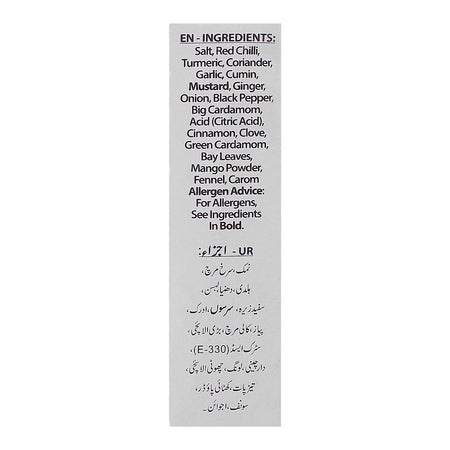 EN - INGREDIENTS:
Salt, Red Chilli,
Turmeric, Coriander,
Garlic, Cumin,
Mustard, Ginger,
Onion, Black Pepper,
Big Cardamom,
Acid (Citric Acid),
Cinnamon, Clove,
Green Cardamom,
Bay Leaves,
Mango Powder,
Fennel, Carom
Allergen Advice:
For Allergens,
See Ingredients
In Bold.
UR - اجزاء:
نمک، سرخ مرچ،
ہلدی، دھنیا، لہسن،
سفید زیرہ، سرسوں، ادرک،
پیاز، کالی مرچ، بڑی الائچی،
سٹرک ایسڈ (E-330)،
دارچینی، لونگ، چھوٹی الائچی،
تیز پات، کھٹائی پاؤڈر،
سونف، اجوائن۔